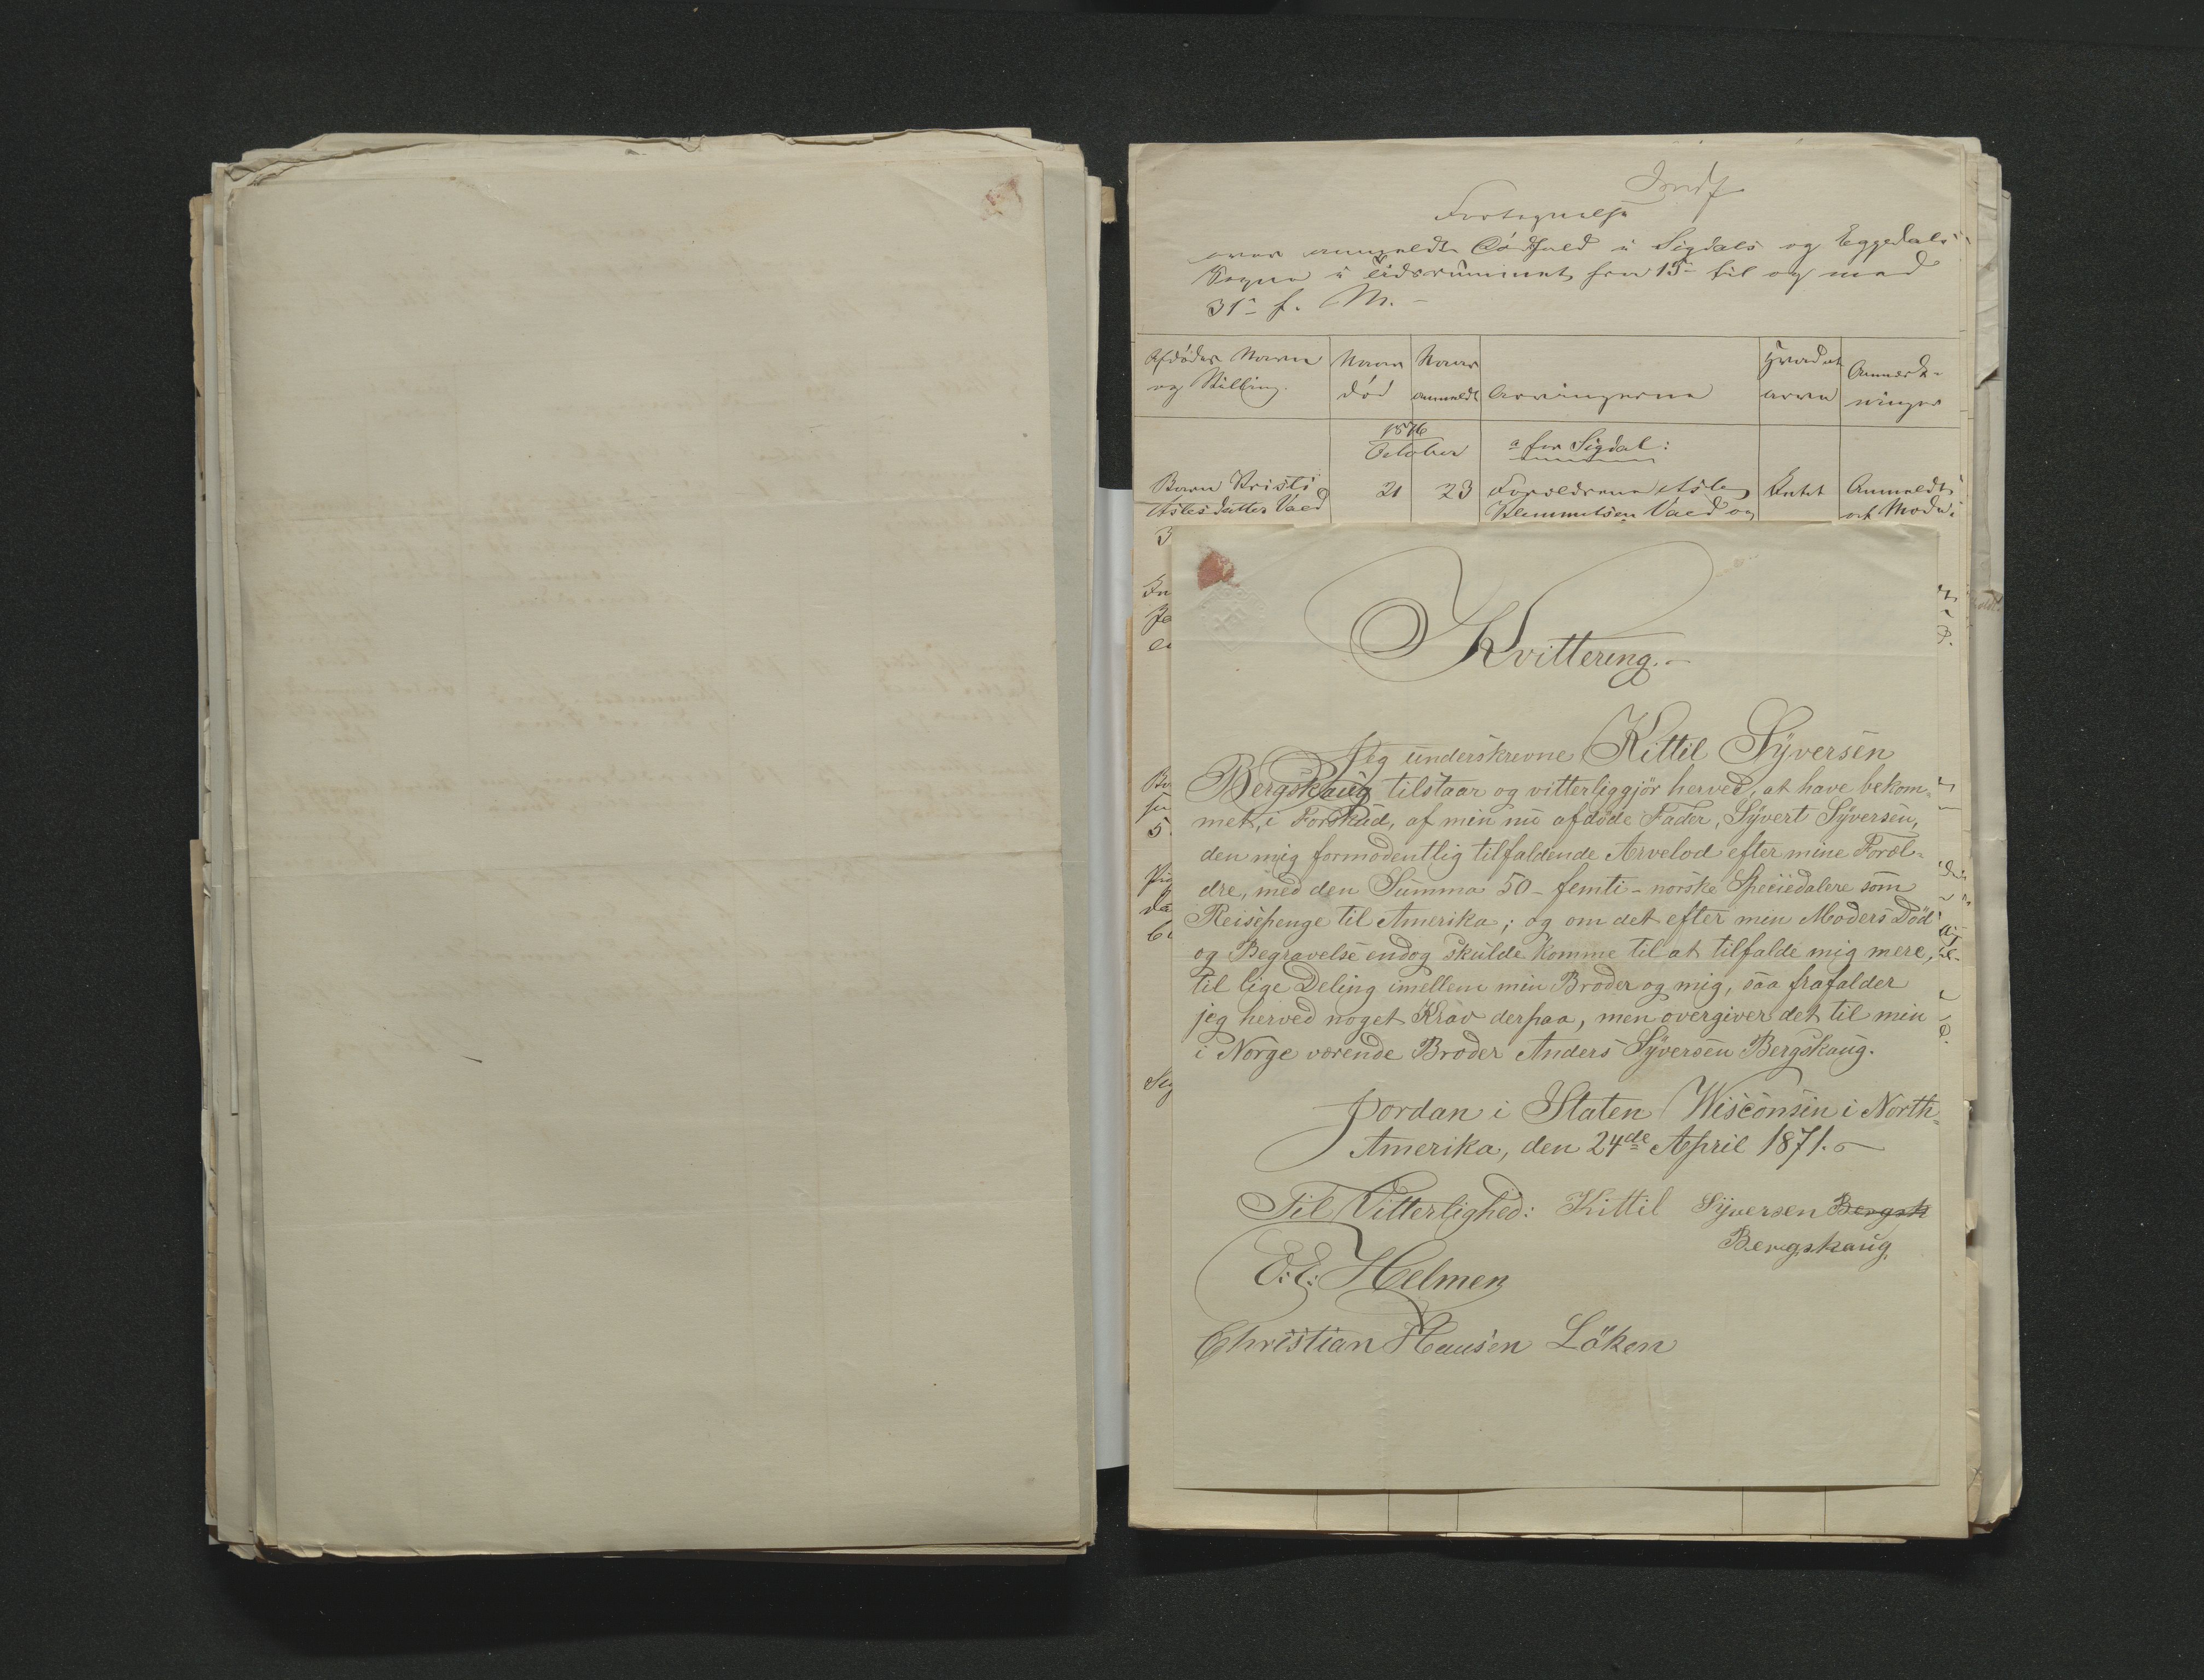 Fortegnelse
over anmeldte Dödsfald i Sigdals og Eggedals
Sogne i Tidsrummet fra 15de til og med
31te f. M.
Afdödes Navn og Stilling.
Naar död
Naar anmeldt
Arvingerne
Hvad at arve
Anmærkninger
1876
October
a for Sigdal:
Barn Kristi 21 23 Forældrene Asle Intet Anmeldt
Aslesdatter Vaed Klemmetsen Vaed og af Mode
Kvittering.
Jeg underskrevne Kittil Syversen
Bergskaug tilstaar og vitterliggjör herved, at have bekom-
met, i Forskud, af min nu afdöde Fader, Syvert Syversen,
den mig formodentlig tilfaldende Arvelod efter mine Foræl-
dre, med den Summa 50 - femti - norske Speciedalere som
Reisepenge til Amerika; og om det efter min Moders Död
og Begravelse endog skulde komme til at tilfalde mig mere,
til lige Deling imellem min Broder og mig, saa frafalder
jeg herved noget Krav derpaa, men overgiver det til min
i Norge værende Broder Anders Syversen Bergskaug.
Jordan i Staten Wisconsin i North-
Amerika, den 24de April 1871.
Til Vitterlighed: Kittil Syversen Bergsk
Bergskaug
E. E. Helmen
Christian Hansen Löken